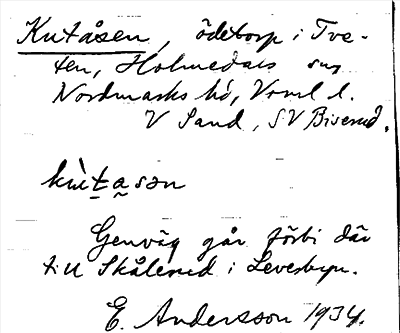 Kutåsen, ödetorp i Tve-
ten, Holmedals sn,
Nordmarks hd, Vrml l.
V Sand, SV Biserud.
kùtasən
Genväg går förbi där
till Skålerud i Levesbyn.
E. Andersson 1934.